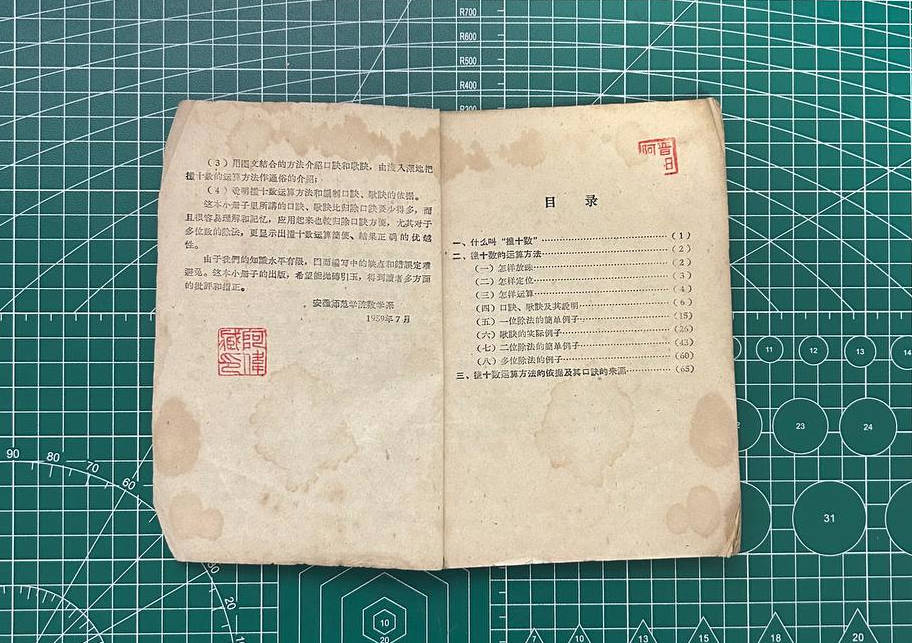 （3）用图文结合的方法介紹口訣和歌訣，由淺入深地把
撞十数的运算方法作通俗的介紹；
（4）說明撞十数运算方法和編制口訣、歌訣的依据。
这本小册子里所講的口訣、歌訣比归除口訣要少得多，而
且很容易理解和記忆，应用起来也較归除口訣方便，尤其对于
多位数的除法，更显示出撞十数运算简便、結果正确的优越
性。
由于我們的知識水平有限，因而編写中的缺点和錯誤定难
避免。这本小册子的出版，希望能抛磚引玉，得到讀者多方面
的批评和指正。
安徽师范学院数学系
1959年7月
阿偉
藏印
目 录
一、什么叫“撞十数”（1）
二、撞十数的运算方法（2）
（一）怎样放珠（2）
（二）怎样定位（3）
（三）怎样运算（4）
（四）口訣、歌訣及其說明（6）
（五）一位除法的簡单例子（15）
（六）歌訣的实际例子（26）
（七）二位除法的簡单例子（43）
（八）多位除法的例子（60）
三、撞十数运算方法的依据及其口訣的来源（65）
R700
R600
R500
R400
R300
90
80
70
60
20
11
12
13
14
23
24
31
10
20
7
10
13
15
18
20